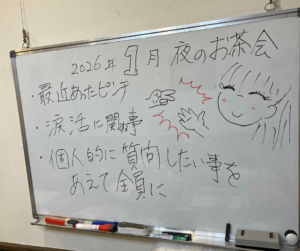 2026年 1月 夜のお茶会
最近あったピンチ
・涙活に関する事
・個人的に質問したい事を
あえて全員に